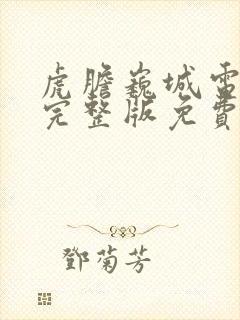 虎膽巍城電
完整版免費
鄧菊芳